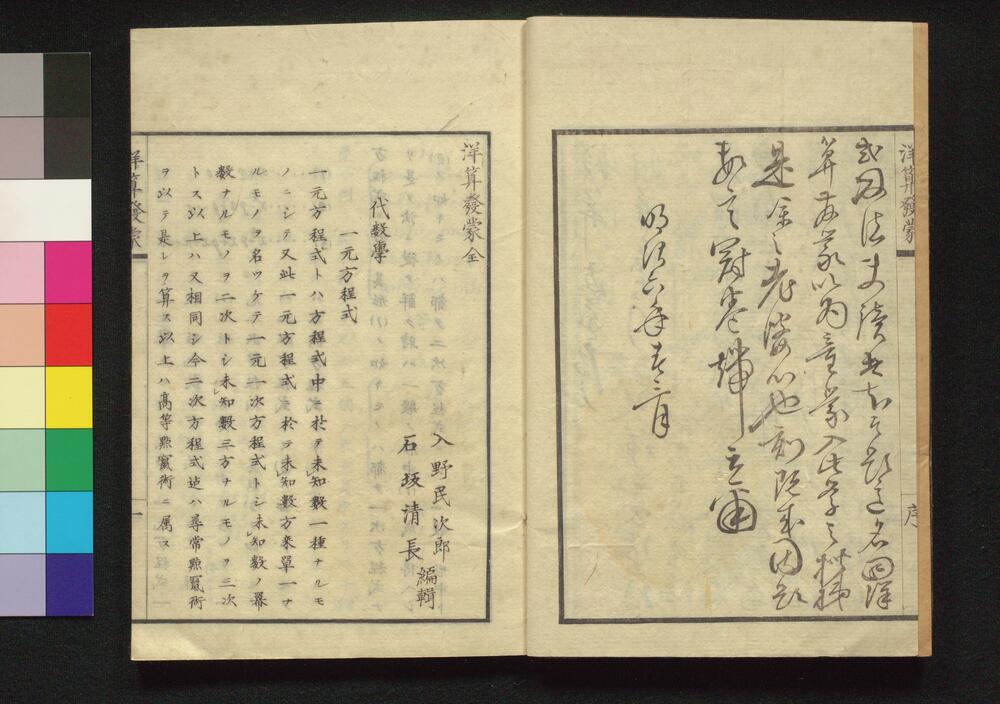 洋算發蒙
序
名曰洋
算發蒙以為童蒙入此学之楷梯
是余之老婆心也刻既成因
冠巻端云爾
明治六年春三月
洋算發蒙全
入野民次郎
石坂清長
編輯
代数學
一元方程式
一元方程式トハ方程式中ニ於テ未知數一種ナルモ
ノニシテ又此一元方程式ニ於テ未知數方乘單一ナ
ルモノヲ名ツケテ一元一次方程式トシ未知數ノ冪
數ナルモノヲ二次トシ未知數三方ナルモノヲ三次
トス以上ハ又相同シ今二次方程式迠ハ尋常㸃竄術
ヲ以テ是レヲ算ス以上ハ高等㸃竄術ニ属ス
洋算發蒙
一